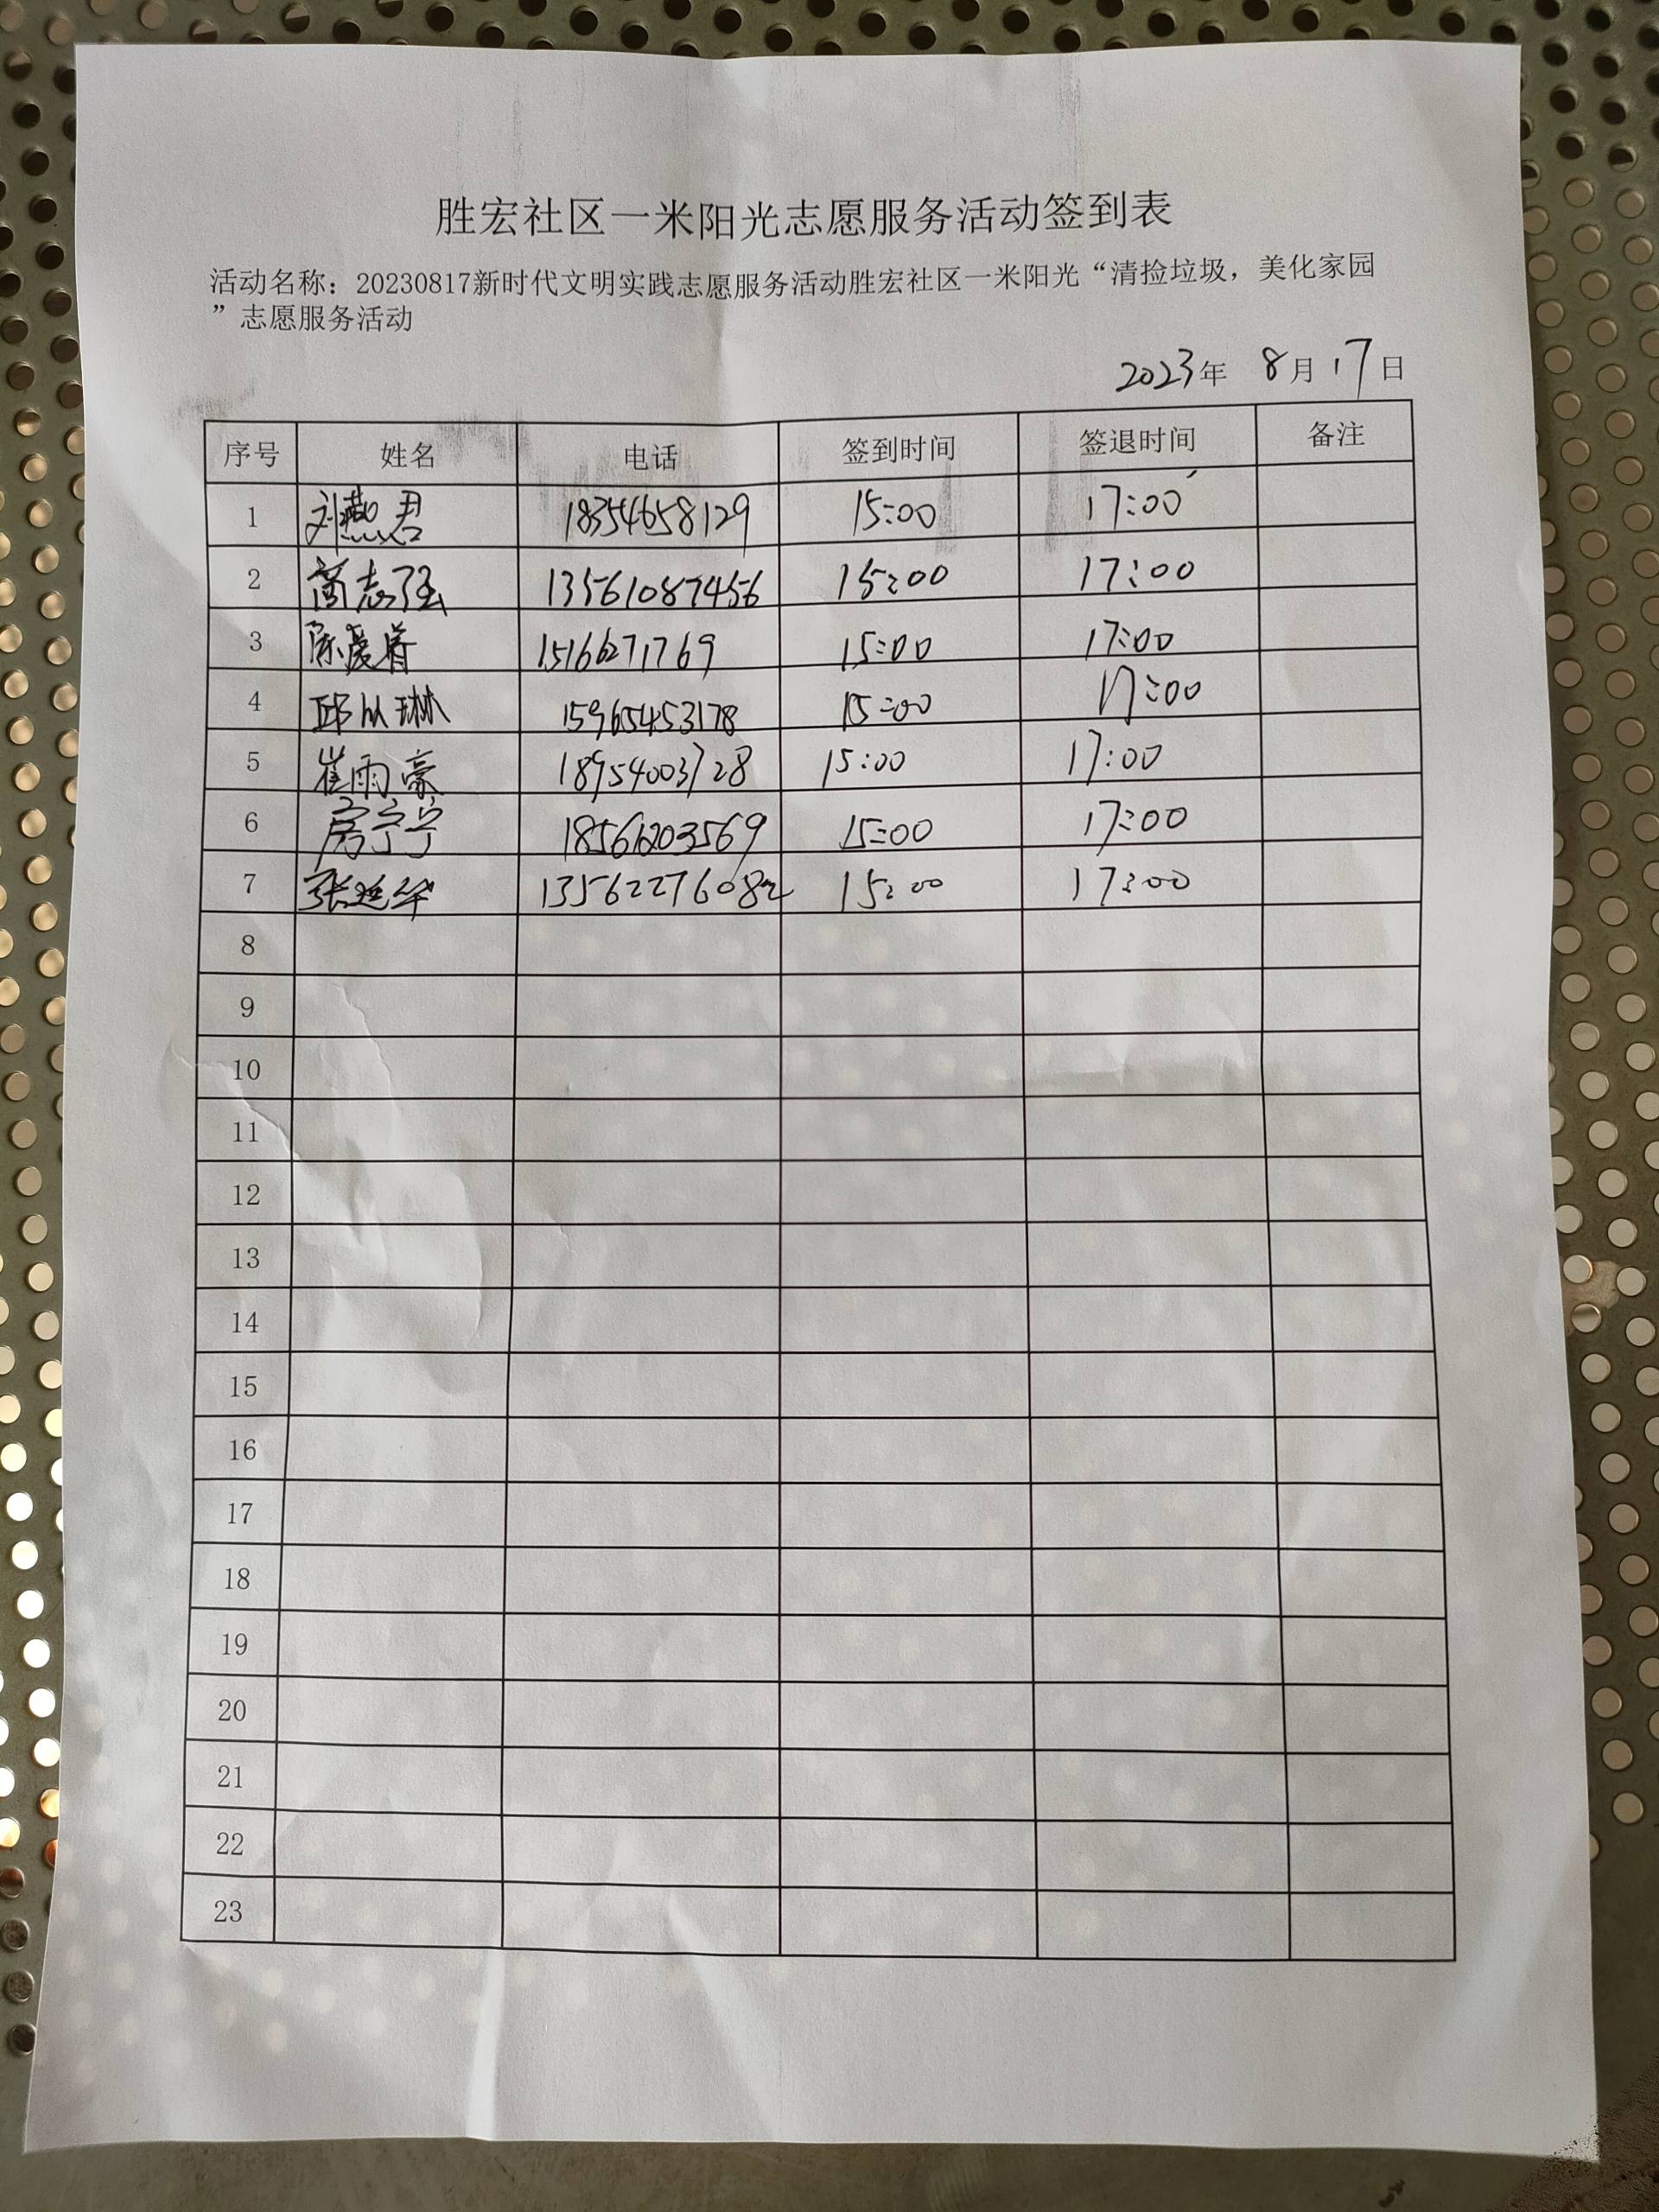 胜宏社区一米阳光志愿服务活动签到表
活动名称：20230817新时代文明实践志愿服务活动胜宏社区一米阳光“清捡垃圾，美化家园
”志愿服务活动
2023年 8月17日
序号 姓名 电话 签到时间 签退时间 备注
1 刘燕君 18354658129 15:00 17:00
2 商志强 13561087456 15:00 17:00
3 陈爱着 1516671769 15:00 17:00
4 邱从琳 15965453178 15:00 17:00
5 崔雨豪 18954003728 15:00 17:00
6 房宁宁 18561203569 15:00 17:00
7 张延华 13562276082 15:00 17:00
8
9
10
11
12
13
14
15
16
17
18
19
20
21
22
23